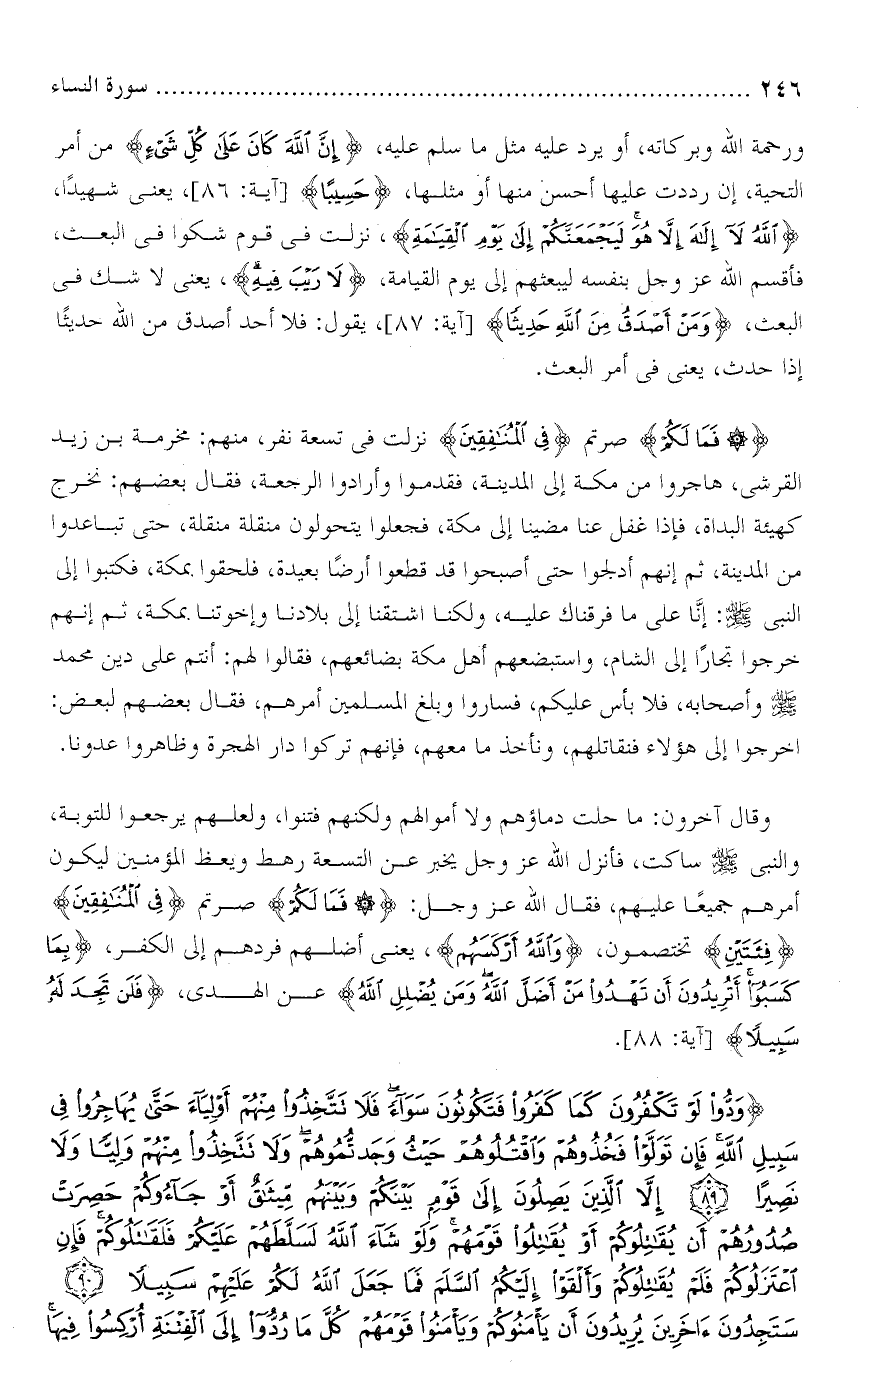 ٢٤٦ ........................................................................... سورة النساء
ورحمة الله وبركاته، أو يرد عليه مثل ما سلم عليه، ﴿إِنَّ ٱللَّهَ كَانَ عَلَىٰ كُلِّ شَىْءٍ﴾ من أمر
التحية، إن رددت عليها أحسن منها أو مثلـها، ﴿حَسِيبًا﴾ [آية: ٨٦]، يعنـى شـهيدًا،
﴿ٱللَّهُ لَآ إِلَٰهَ إِلَّا هُوَۚ لَيَجْمَعَنَّكُمْ إِلَىٰ يَوْمِ ٱلْقِيَٰمَةِ﴾، نزلـت فـى قـوم شـكوا فـى البعـث،
فأقسم الله عز وجل بنفسه ليبعثهم إلى يوم القيامة، ﴿لَا رَيْبَ فِيهِۗ﴾، يعنى لا شـك فـى
البعث، ﴿وَمَنْ أَصْدَقُ مِنَ ٱللَّهِ حَدِيثًا﴾ [آية: ٨٧]، يقول: فلا أحد أصدق من الله حديثًا
إذا حدث، يعنى فى أمر البعث.
﴿۞ فَمَا لَكُمْ﴾ صرتم ﴿فِى ٱلْمُنَٰفِقِينَ﴾ نزلت فى تسعة نفر، منهم: مخرمـة بـن زيـد
القرشى، هاجروا من مكـة إلى المدينـة، فقدمـوا وأرادوا الرجعـة، فقـال بعضـهم: نخـرج
كهيئة البداة، فإذا غفل عنا مضينا إلى مكة، فجعلوا يتحولون منقلة منقلة، حتى تبـاعدوا
من المدينة، ثم إنهم أدلجوا حتى أصبحوا قد قطعوا أرضًا بعيدة، فلحقوا بمكة، فكتبوا إلى
النبى ﷺ: إنَّا على ما فرقناك عليـه، ولكنـا اشـتقنا إلى بلادنـا وإخوتنـا بمكـة، ثـم إنـهم
خرجوا تجارًا إلى الشام، واستبضعهم أهل مكة بضائعهم، فقالوا لهم: أنتم على دين محمد
ﷺ وأصحابه، فلا بأس عليكم، فساروا وبلغ المسـلمين أمرهـم، فقـال بعضـهم لبعض:
اخرجوا إلى هؤلاء فنقاتلهم، ونأخذ ما معهم، فإنهم تركوا دار الهجرة وظاهروا عدونا.
وقال آخرون: ما حلت دماؤهم ولا أموالهم ولكنهم فتنوا، ولعلـهم يرجعـوا للتوبـة،
والنبى ﷺ ساكت، فأنزل الله عز وجل يخبر عـن التسـعة رهـط ويعـظ المؤمنـين ليكون
أمرهـم جميعًـا عليـهم، فقـال الله عـز وجـل: ﴿۞ فَمَا لَكُمْ﴾ صـرتم ﴿فِى ٱلْمُنَٰفِقِينَ﴾
﴿فِئَتَيْنِ﴾ تختصمـون، ﴿وَٱللَّهُ أَرْكَسَهُم﴾، يعنـى أضلـهم فردهـم إلى الكفـر، ﴿بِمَا
كَسَبُوٓا۟ۚ أَتُرِيدُونَ أَن تَهْدُوا۟ مَنْ أَضَلَّ ٱللَّهُۖ وَمَن يُضْلِلِ ٱللَّهُ﴾ عـن الهـدى، ﴿فَلَن تَجِدَ لَهُۥ
سَبِيلًا﴾ [آية: ٨٨].
﴿وَدُّوا۟ لَوْ تَكْفُرُونَ كَمَا كَفَرُوا۟ فَتَكُونُونَ سَوَآءًۖ فَلَا تَتَّخِذُوا۟ مِنْهُمْ أَوْلِيَآءَ حَتَّىٰ يُهَاجِرُوا۟ فِى
سَبِيلِ ٱللَّهِۚ فَإِن تَوَلَّوْا۟ فَخُذُوهُمْ وَٱقْتُلُوهُمْ حَيْثُ وَجَدتُّمُوهُمْۖ وَلَا تَتَّخِذُوا۟ مِنْهُمْ وَلِيًّا وَلَا
نَصِيرًا ٨٩ إِلَّا ٱلَّذِينَ يَصِلُونَ إِلَىٰ قَوْمٍۭ بَيْنَكُمْ وَبَيْنَهُم مِّيثَٰقٌ أَوْ جَآءُوكُمْ حَصِرَتْ
صُدُورُهُمْ أَن يُقَٰتِلُوكُمْ أَوْ يُقَٰتِلُوا۟ قَوْمَهُمْۚ وَلَوْ شَآءَ ٱللَّهُ لَسَلَّطَهُمْ عَلَيْكُمْ فَلَقَٰتَلُوكُمْۚ فَإِنِ
ٱعْتَزَلُوكُمْ فَلَمْ يُقَٰتِلُوكُمْ وَأَلْقَوْا۟ إِلَيْكُمُ ٱلسَّلَمَ فَمَا جَعَلَ ٱللَّهُ لَكُمْ عَلَيْهِمْ سَبِيلًا ٩٠
سَتَجِدُونَ ءَاخَرِينَ يُرِيدُونَ أَن يَأْمَنُوكُمْ وَيَأْمَنُوا۟ قَوْمَهُمْ كُلَّ مَا رُدُّوٓا۟ إِلَى ٱلْفِتْنَةِ أُرْكِسُوا۟ فِيهَاۚ